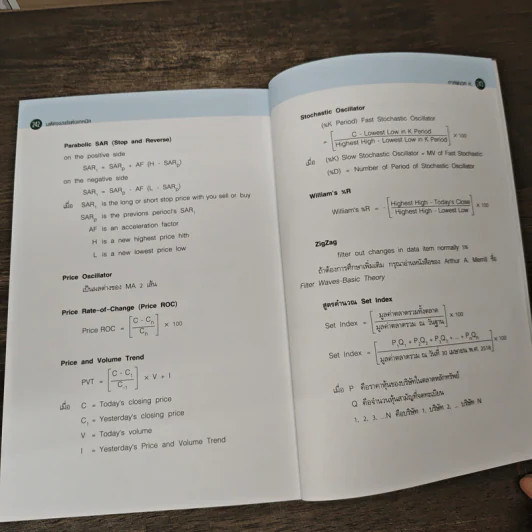 242
Parabolic SAR (Stop and Reverse)
on the positive side
SAR₁ = SARₚ + AF (H - SARₚ)
on the negative side
SAR₁ = SARₚ - AF (L - SARₚ)
เมื่อ SAR₁ is the long or short stop price with you sell or buy
SARₚ is the previons perioci's SAR₁
AF is an acceleration factor
H is a new highest price hith
L is a new lowest price low
Price Oscillator
เป็นผลต่างของ MA 2 เส้น
Price Rate-of-Change (Price ROC)
Price ROC = [(C - Cₙ) / Cₙ] × 100
Price and Volume Trend
PVT = [(C - C₁) / C₁] × V + I
เมื่อ C = Today's closing price
C₁ = Yesterday's closing price
V = Today's volume
I = Yesterday's Price and Volume Trend
Stochastic Oscillator
(%K Period) Fast Stochastic Oscillator
= [C - Lowest Low in K Period / Highest High - Lowest Low in K Period] × 100
เมื่อ (%K) Slow Stochastic Oscillator = MV of Fast Stochastic
(%D) = Number of Period of Stochastic Oscillator
William's %R
William's %R = -[Highest High - Today's Close / Highest High - Lowest Low] × 100
ZigZag
filter out changes in data item normally is
ถ้าต้องการศึกษาเพิ่มเติม กรุณาอ่านหนังสือของ Arthur A. Merrill ชื่อ
Filter Waves-Basic Theory
สูตรคำนวณ Set Index
Set Index = [มูลค่าตลาดรวมทั้งตลาด / มูลค่าตลาดรวม ณ วันฐาน] × 100
Set Index = [P₁Q₁ + P₂Q₂ + P₃Q₃ + ... + PₙQₙ / มูลค่าตลาดรวม ณ วันที่ 30 เมษายน พ.ศ. 2518] × 100
เมื่อ P คือราคาหุ้นของบริษัทในตลาดหลักทรัพย์
Q คือจำนวนหุ้นสามัญที่จดทะเบียน
1, 2, 3, ...N คือบริษัท 1, บริษัท 2, ... บริษัท N